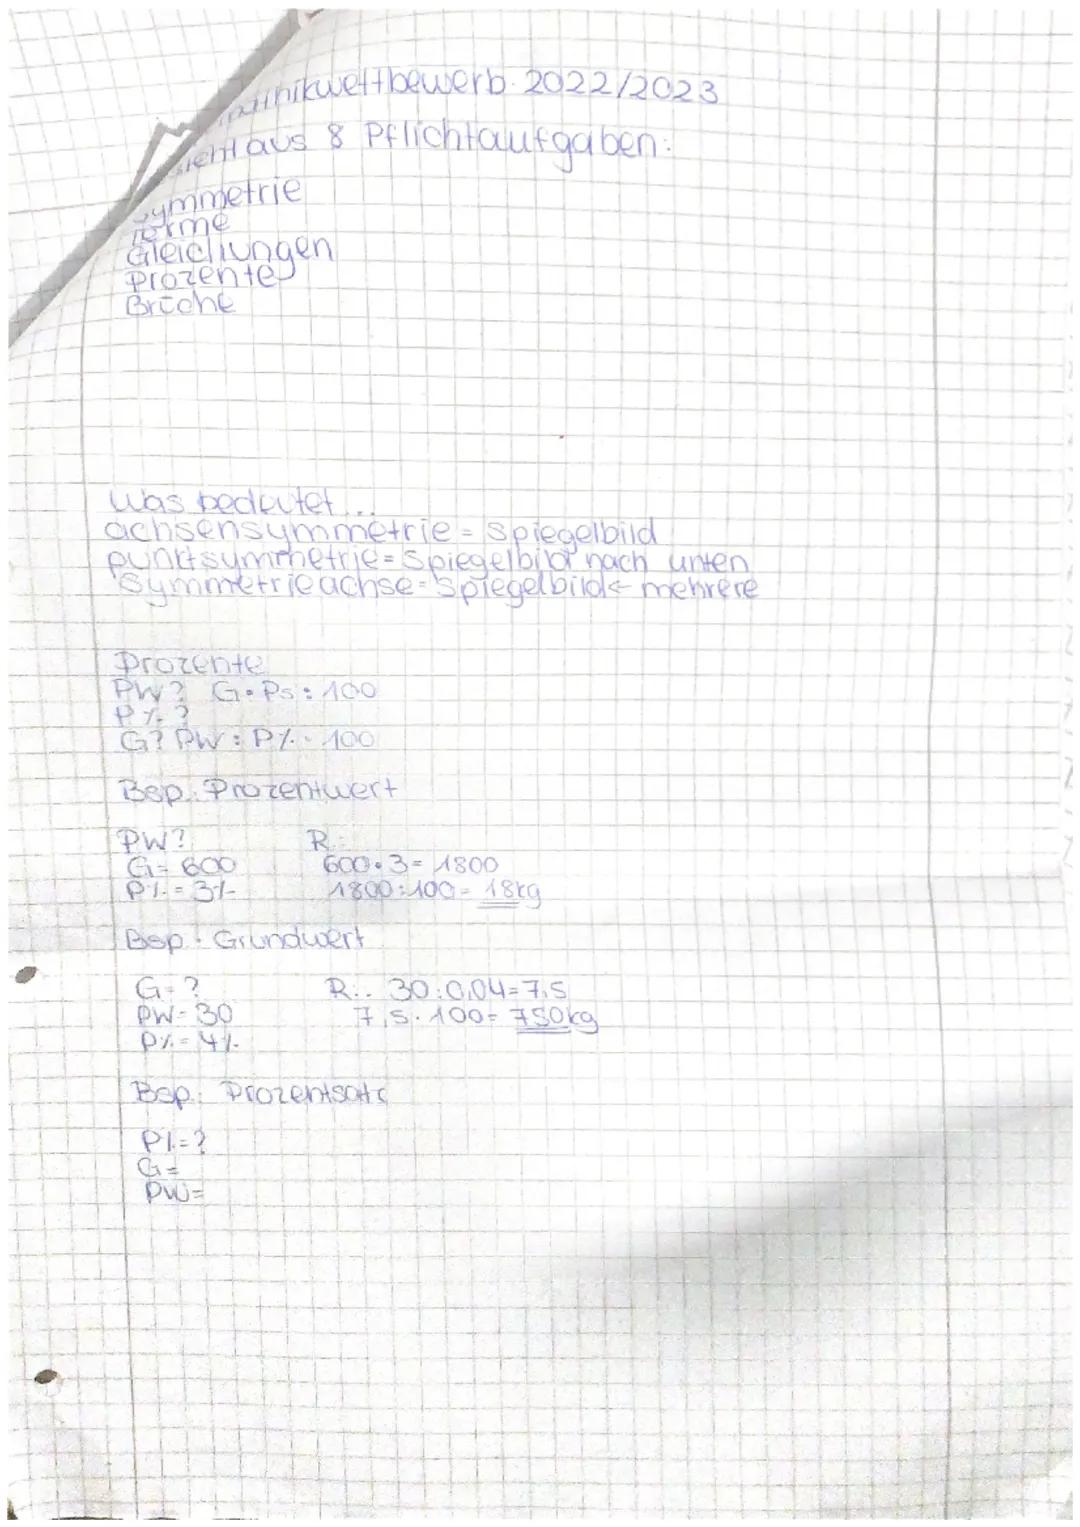 2022/2023
aus 8 Pflichtaufgaben:
Symmetrie
Terme
Gleichungen
Prozente
Brüche
Was bedeutet...
achsensymmetrie = Spiegelbild
punktsymmetrie = Spiegelbild nach unten
Symmetrieachse = Spiegelbild ← mehrere
Prozente
PW? G • Ps : 100
P%?
G? PW : P% · 100
Bsp.: Prozentwert
PW? R.:
G = 600 600 • 3 = 1800
P% = 3% 1800 : 100 = 18kg
Bsp.: Grundwert
G = ? R.: 30 : 0,04 = 7,5
PW = 30 7,5 · 100 = 750kg
P% = 4%
Bsp.: Prozentsatz
P% = ?
G =
PW =